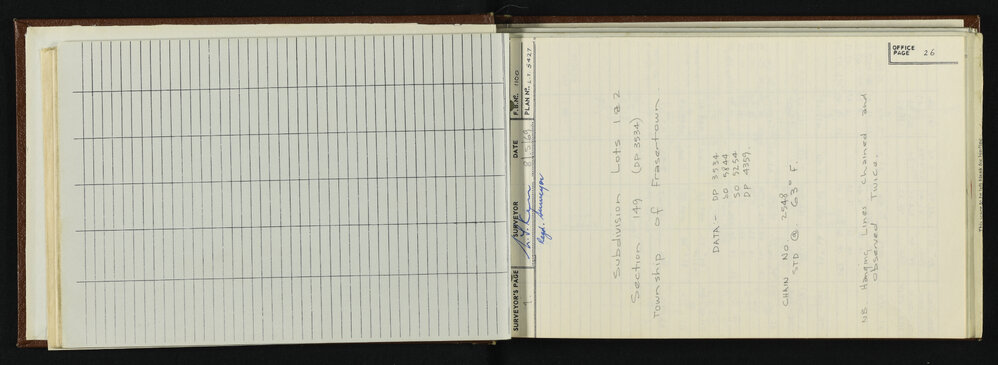 OFFICE PAGE 26
SURVEYOR'S PAGE 1
SURVEYOR
Regd. Surveyor
DATE 8/5/69
F.B. No. 1100
PLAN No. L.T. 5427
Subdivision Lots 1 & 2
Section 149 (DP 3534)
Township of Frasertown.
DATA - DP 3534
SO 5844
SO 5254
DP 4359.
CHAIN NO 2548
STD @ 63° F.
NB Hanging Lines chained and
observed Twice.